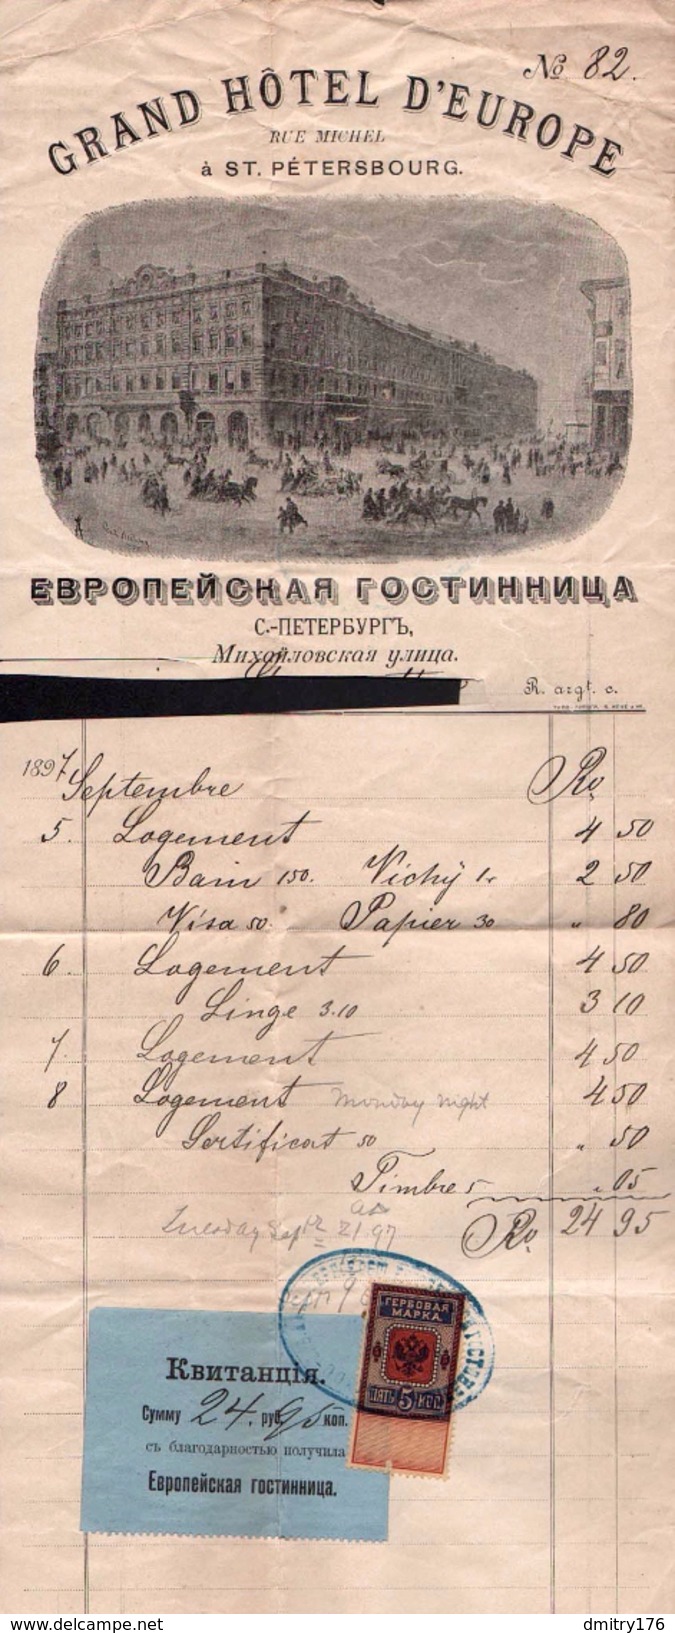 № 82.
GRAND HÔTEL D'EUROPE
RUE MICHEL
à ST. PÉTERSBOURG.
ЕВРОПЕЙСКАЯ ГОСТИННИЦА
С.-ПЕТЕРБУРГЪ,
Михайловская улица.
R. argt. c.
1897 Septembre Ro
5. Logement 4 50
Bain 150. Vichÿ 1 2 50
Visa 50. Papier 30 " 80
6. Logement 4 50
Linge 3.10 3 10
7. Logement 4 50
8 Logement Monday night 4 50
Sertificat 50 " 50
Timbre 5 " 05
Tuesday Sept 21 97 Ro 24 95
ГЕРБОВАЯ
МАРКА
ПЯТЬ 5 КОП
Квитанція.
Сумму 24, руб. 95 коп.
съ благодарностью получила
Европейская гостинница.
dmitry176